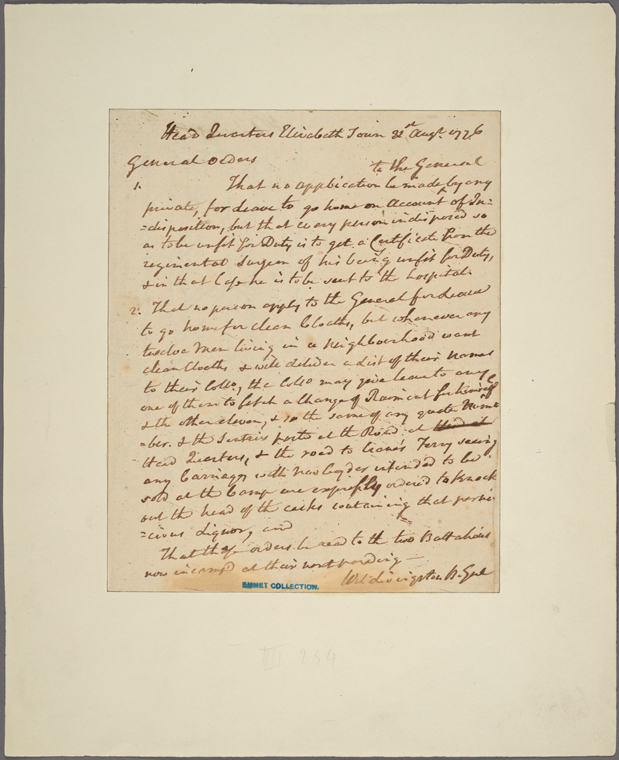 Head Quarters Elizabeth Town 31st Augt. 1776
General Orders
to the General
1. That no application be made ^ by any
private, for Leave to go home on Account of In=
=disposition, but that every person indisposed so
as to be unfit for Duty is to get a Certificate from the
regimental Surgeon of his being unfit for Duty,
& in that Case he is to be sent to the hospital.
2. That no person apply to the General for Leave
to go home for clean Cloaths, but whenever any
twelve Men living in a Neighbourhood want
clean Cloaths & will deliver a List of their Names
to their Collo, the Collo may give leave to any
one of them to fetch a Change of Raiment for himself
& the other eleven, & so the same of any greater Num=
=ber. & the Sentries posts at the Road at
Head Quarters, & the road to Ferry seeing
any Carriages with intended to be
sold at the Camp are expressly ordered to knock
out the head of the casks containing that perni=
=cious Liquor, and
That these orders be read to the two Battalions
now incamp'd at their next parading —
Wil. Livingston B. Genl
EMMET COLLECTION.
III 234